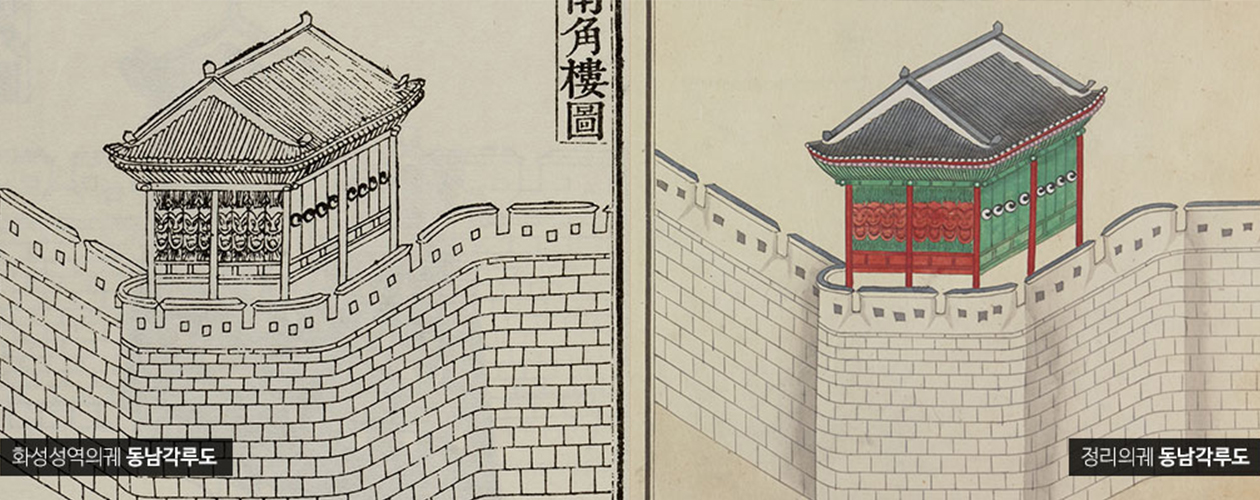 南角樓圖
화성성역의궤 동남각루도
정리의궤 동남각루도